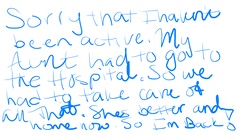 Sorry that I havent
been active. My
Aunt had to go to
the Hospital. So we
had to take care of
all that. Shes better and
home now So I'm Back